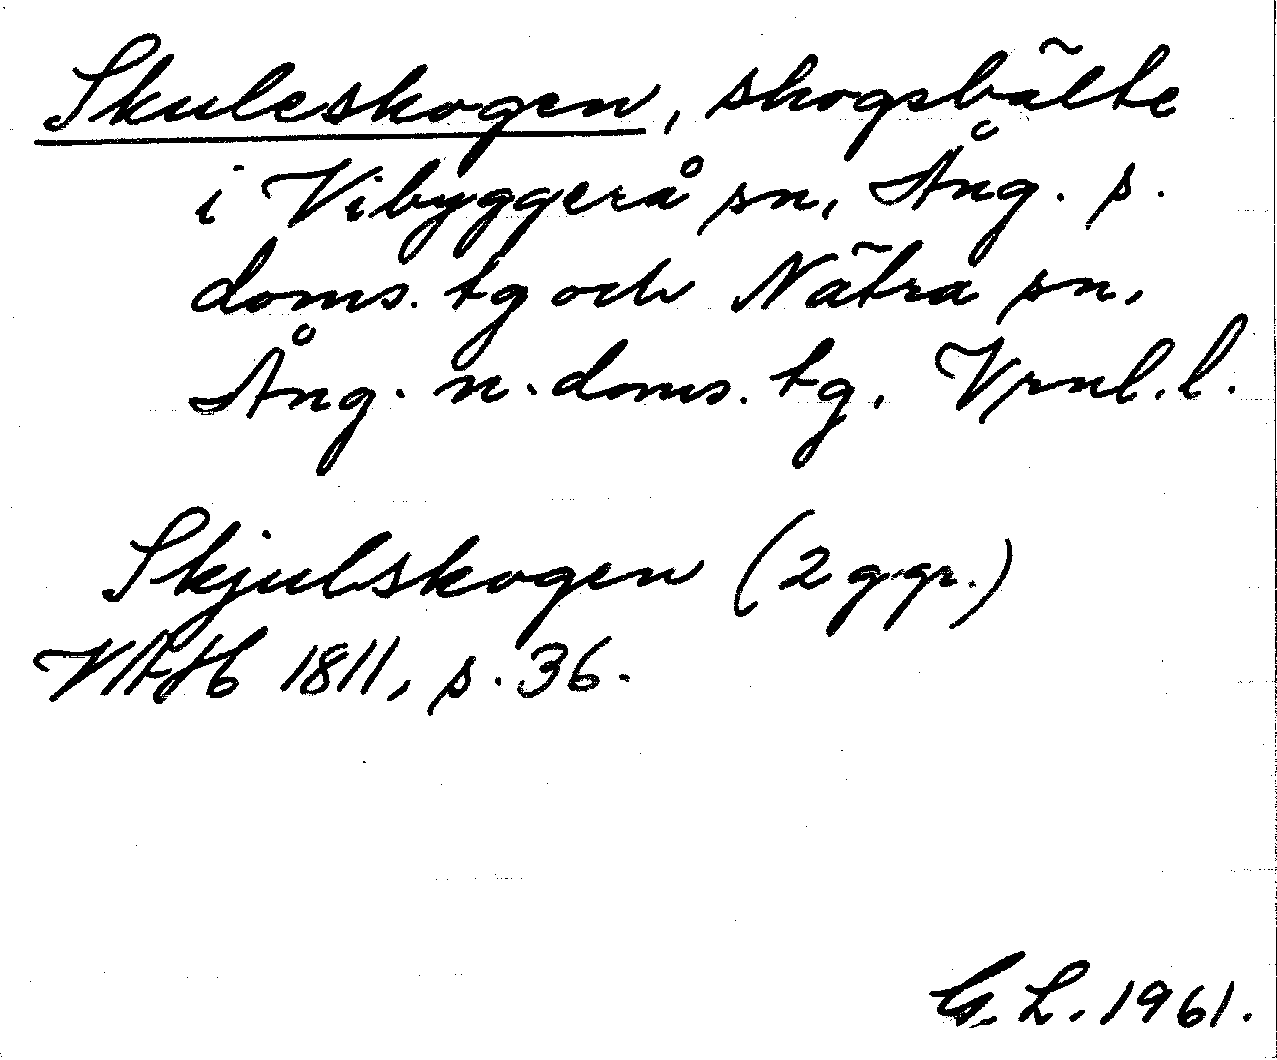 Skuleskogen, skogsbälte
i Vibyggerå sn, Ång. s.
doms. tg och Nätra sn,
Ång. n. doms. tg, Vrnl. l.
Skjulskogen (2 ggr.)
VAH 1811, s. 36.
G. L. 1961.